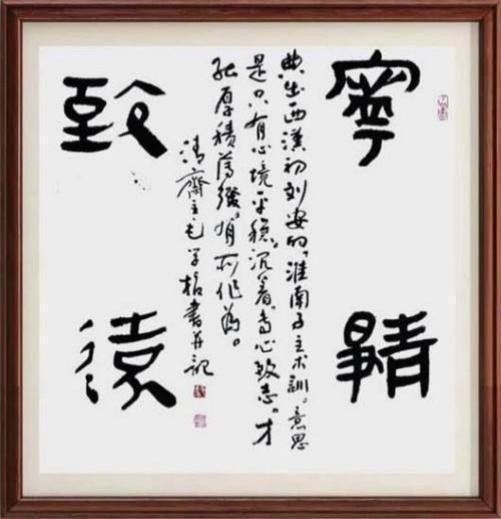 寧靜
典出西漢初刘安的“淮南子主术訓。意思
是只有心境平穩。沉着，专心致志。才
能厚積薄發，有所作為。
清齋主毛学書并記
致遠